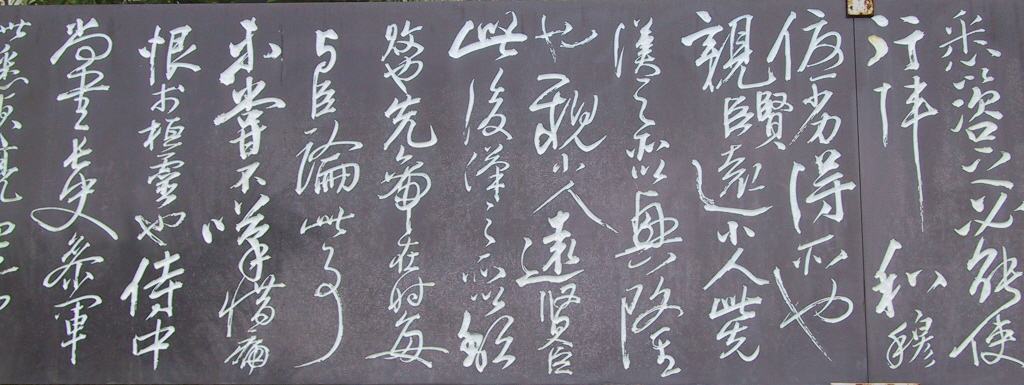 悉咨之必能使
行陣和穆
優劣得所也
親賢臣遠小人此先
漢之所以興隆
也親小人遠賢臣
此後漢之所以傾
頹也先帝在時每
與臣論此事
未嘗不嘆惜痛
恨於桓靈也侍中
尚書長史參軍
此悉貞亮